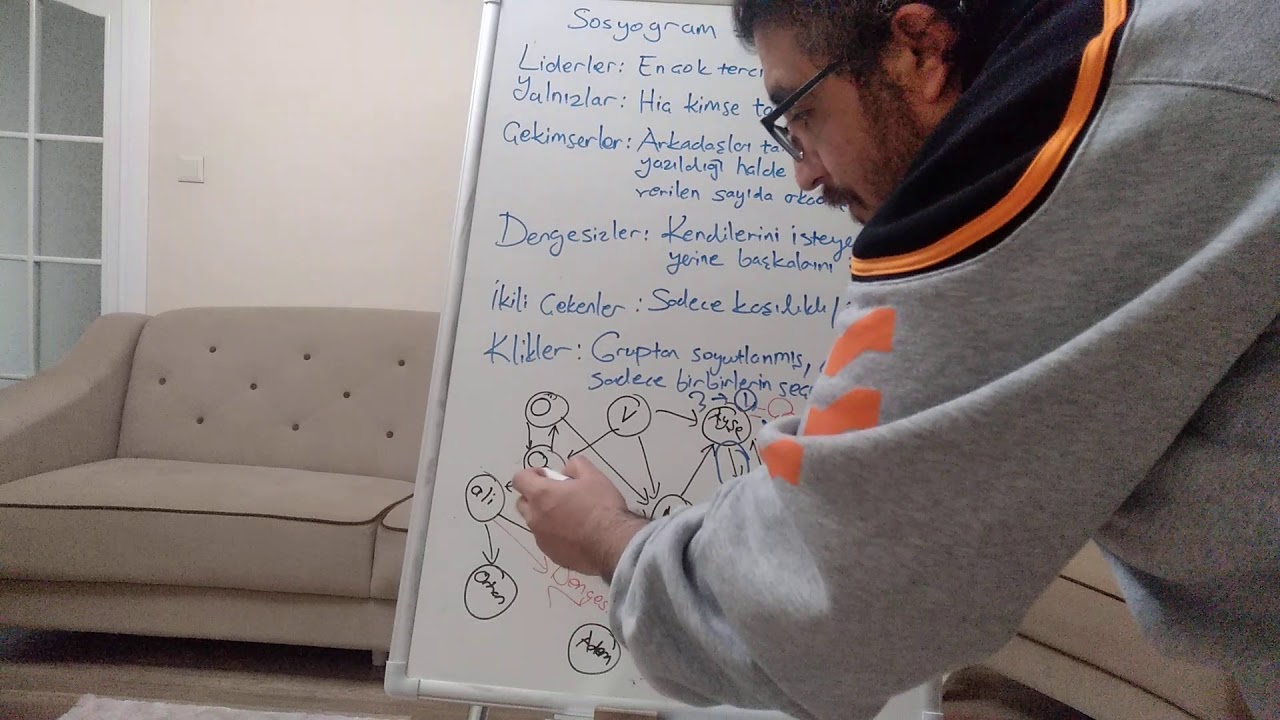 Sosyogram
Liderler: En çok terci
Yalnızlar: Hiç kimse ta
Çekimserler: Arkadaşları ta
yazıldığı halde
verilen sayıda arkad
Dengesizler: Kendilerini isteye
yerine başkalarını
İkili Çekenler: Sadece karşılıklı
Klikler: Gruptan soyutlanmış,
sadece birbirlerin seç
3 → 1
V
Ayşe
ali
Denges
Adem